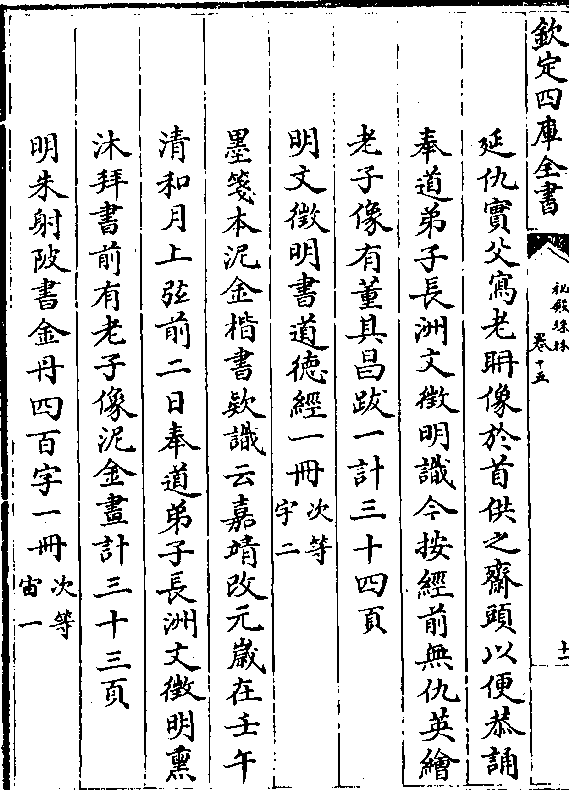 欽定四庫全書
秘殿珠林
卷十五
十一
延仇實父寫老耼像於首供之齋頭以便恭誦
奉道弟子長洲文徵明識今按經前無仇英繪
老子像有董其昌跋一計三十四頁
明文徵明書道德經一冊次等字二
墨箋本泥金楷書欵識云嘉靖改元嵗在壬午
清和月上弦前二日奉道弟子長洲文徵明熏
沐拜書前有老子像泥金畫計三十三頁
明朱射陂書金丹四百字一冊次等宙一